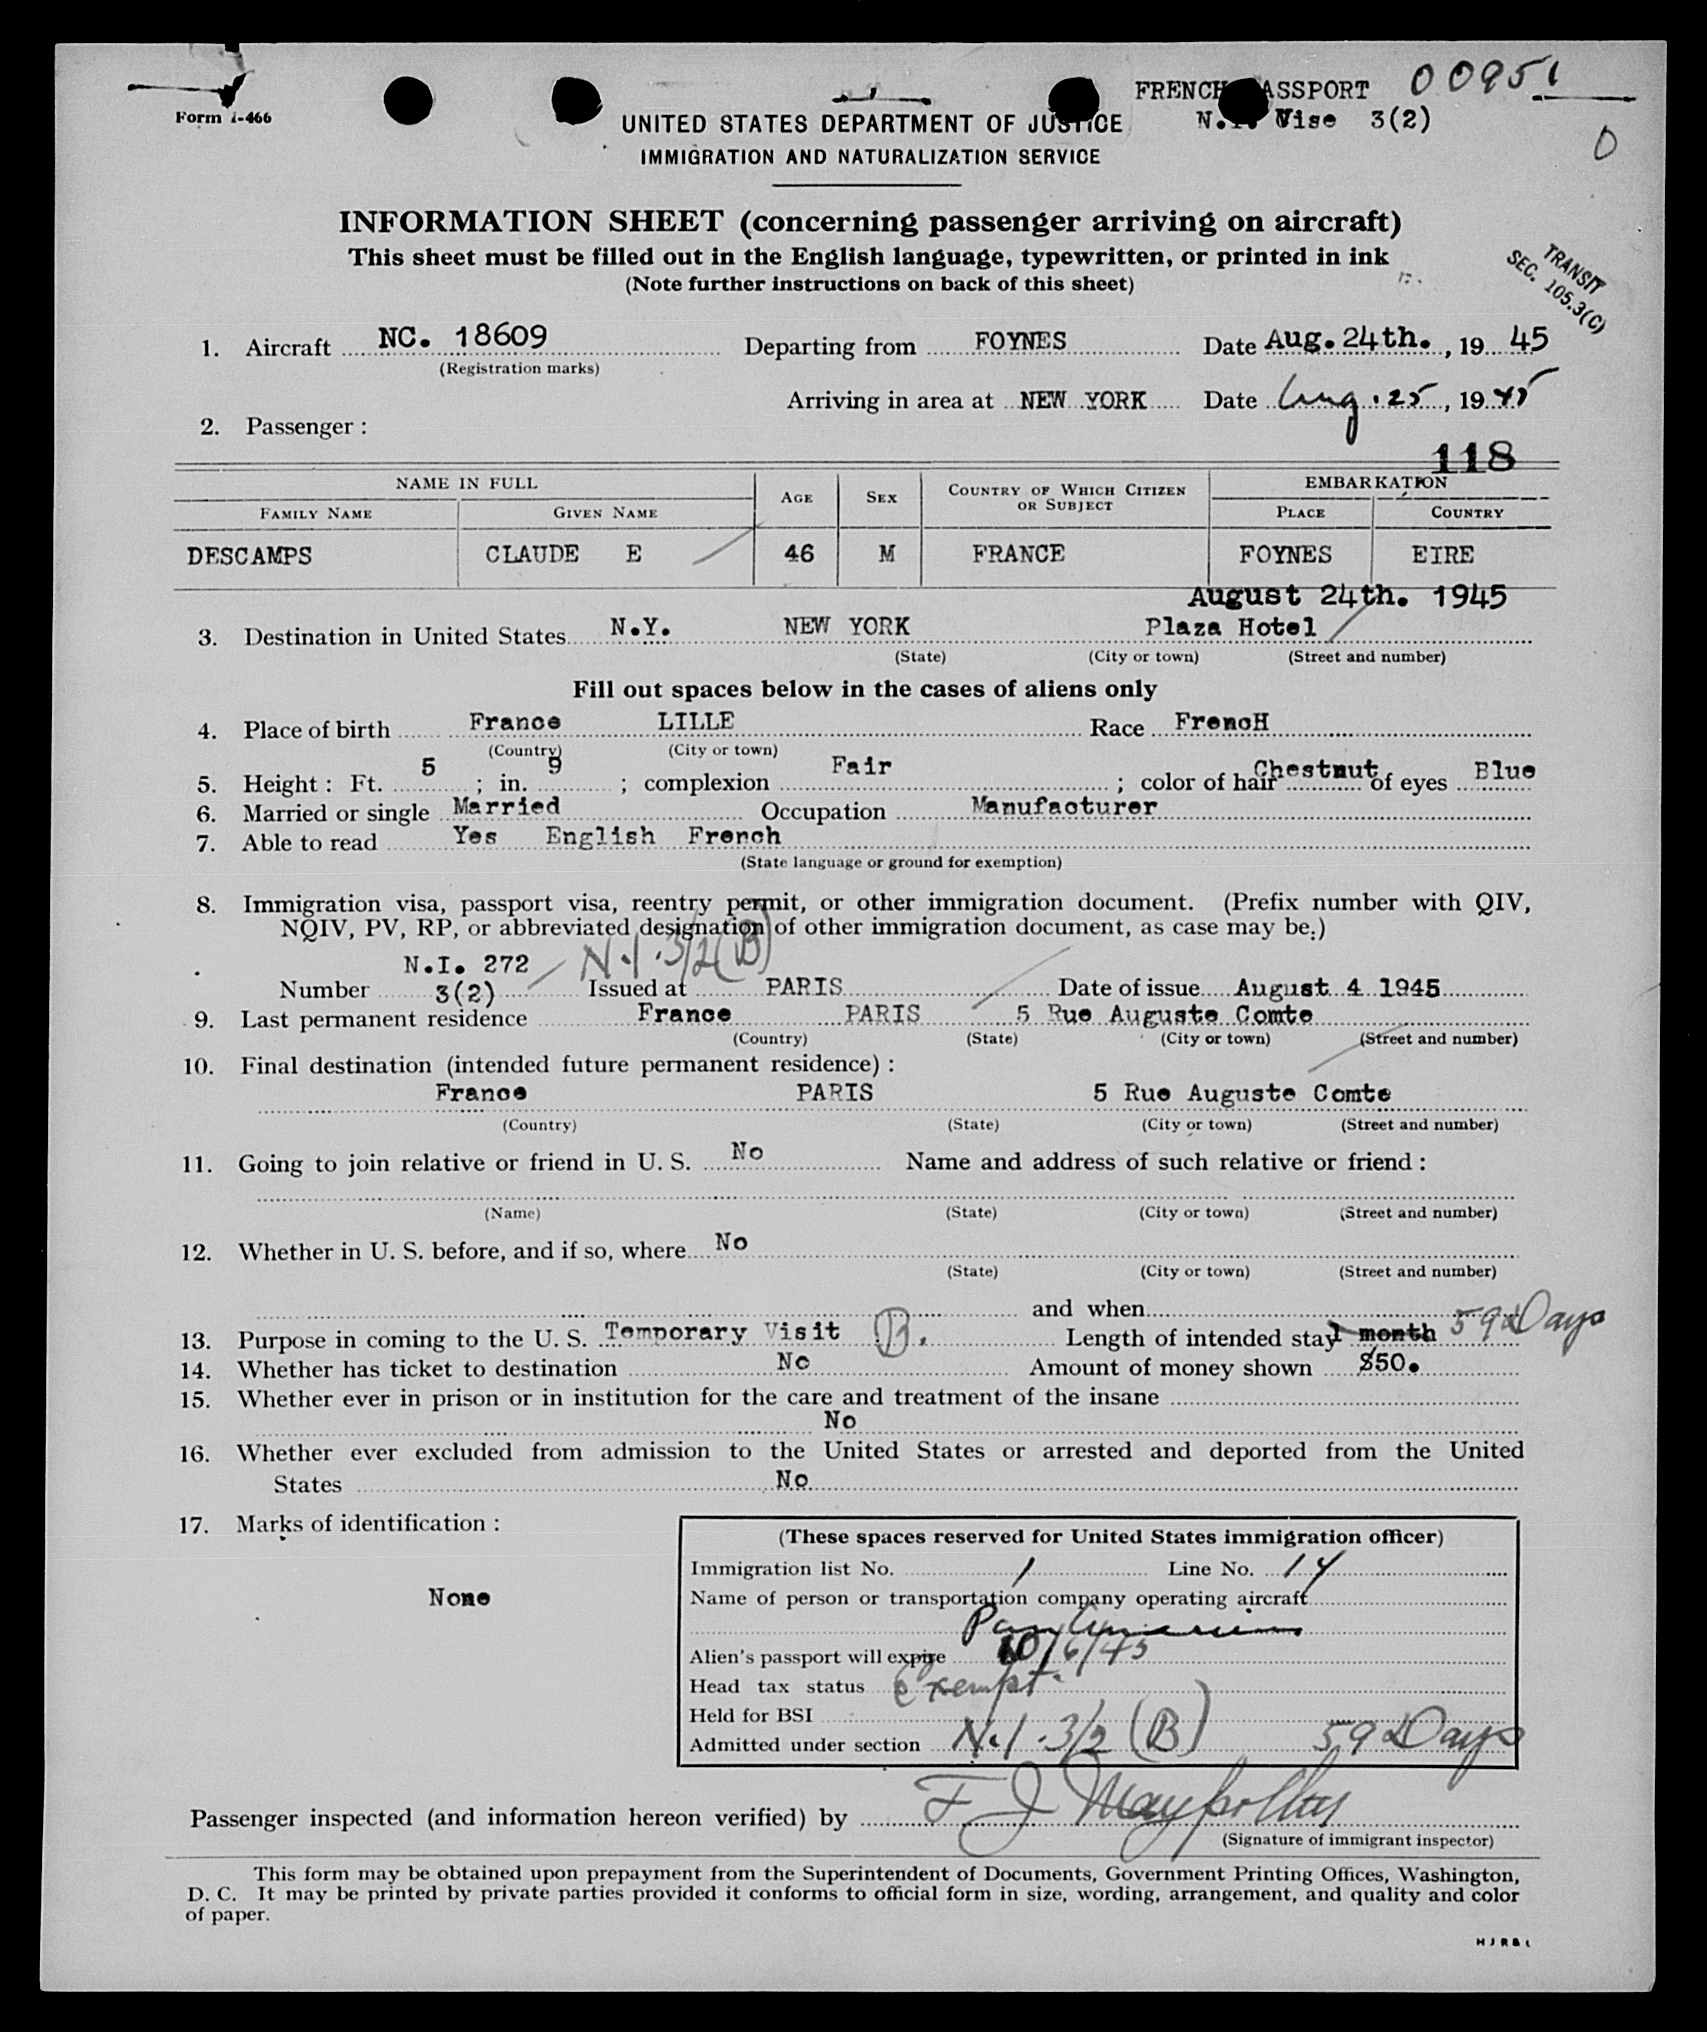 FRENCH PASSPORT 00951
Form I-466
UNITED STATES DEPARTMENT OF JUSTICE N.I. Vise 3(2)
IMMIGRATION AND NATURALIZATION SERVICE
0
INFORMATION SHEET (concerning passenger arriving on aircraft)
This sheet must be filled out in the English language, typewritten, or printed in ink
(Note further instructions on back of this sheet)
TRANSIT
SEC. 105.3(C)
1. Aircraft NC. 18609 Departing from FOYNES Date Aug. 24th., 19 45
(Registration marks)
Arriving in area at NEW YORK Date Aug. 25, 19 45
2. Passenger :
118
NAME IN FULL AGE SEX COUNTRY OF WHICH CITIZEN OR SUBJECT EMBARKATION
FAMILY NAME GIVEN NAME PLACE COUNTRY
DESCAMPS CLAUDE E 46 M FRANCE FOYNES EIRE
August 24th. 1945
3. Destination in United States N.Y. NEW YORK Plaza Hotel
(State) (City or town) (Street and number)
Fill out spaces below in the cases of aliens only
4. Place of birth France LILLE Race FrencH
(Country) (City or town)
5. Height : Ft. 5 ; in. 9 ; complexion Fair ; color of hair Chestnut of eyes Blue
6. Married or single Married Occupation Manufacturer
7. Able to read Yes English French
(State language or ground for exemption)
8. Immigration visa, passport visa, reentry permit, or other immigration document. (Prefix number with QIV,
NQIV, PV, RP, or abbreviated designation of other immigration document, as case may be.)
N.I. 272 N.I. 3/2 (B)
Number 3(2) Issued at PARIS Date of issue August 4 1945
9. Last permanent residence France PARIS 5 Rue Auguste Comte
(Country) (State) (City or town) (Street and number)
10. Final destination (intended future permanent residence) :
France PARIS 5 Rue Auguste Comte
(Country) (State) (City or town) (Street and number)
11. Going to join relative or friend in U. S. No Name and address of such relative or friend :
(Name) (State) (City or town) (Street and number)
12. Whether in U. S. before, and if so, where No
(State) (City or town) (Street and number)
and when
13. Purpose in coming to the U. S. Temporary Visit B. Length of intended stay 1 month 59 Days
14. Whether has ticket to destination No Amount of money shown $50.
15. Whether ever in prison or in institution for the care and treatment of the insane
No
16. Whether ever excluded from admission to the United States or arrested and deported from the United
States No
17. Marks of identification :
None
(These spaces reserved for United States immigration officer)
Immigration list No. 1 Line No. 14
Name of person or transportation company operating aircraft
Pan American
Alien's passport will expire 10/6/45
Head tax status Exempt
Held for BSI
Admitted under section N.I. 3/2 (B) 59 Days
Passenger inspected (and information hereon verified) by F J
(Signature of immigrant inspector)
This form may be obtained upon prepayment from the Superintendent of Documents, Government Printing Offices, Washington,
D. C. It may be printed by private parties provided it conforms to official form in size, wording, arrangement, and quality and color
of paper.